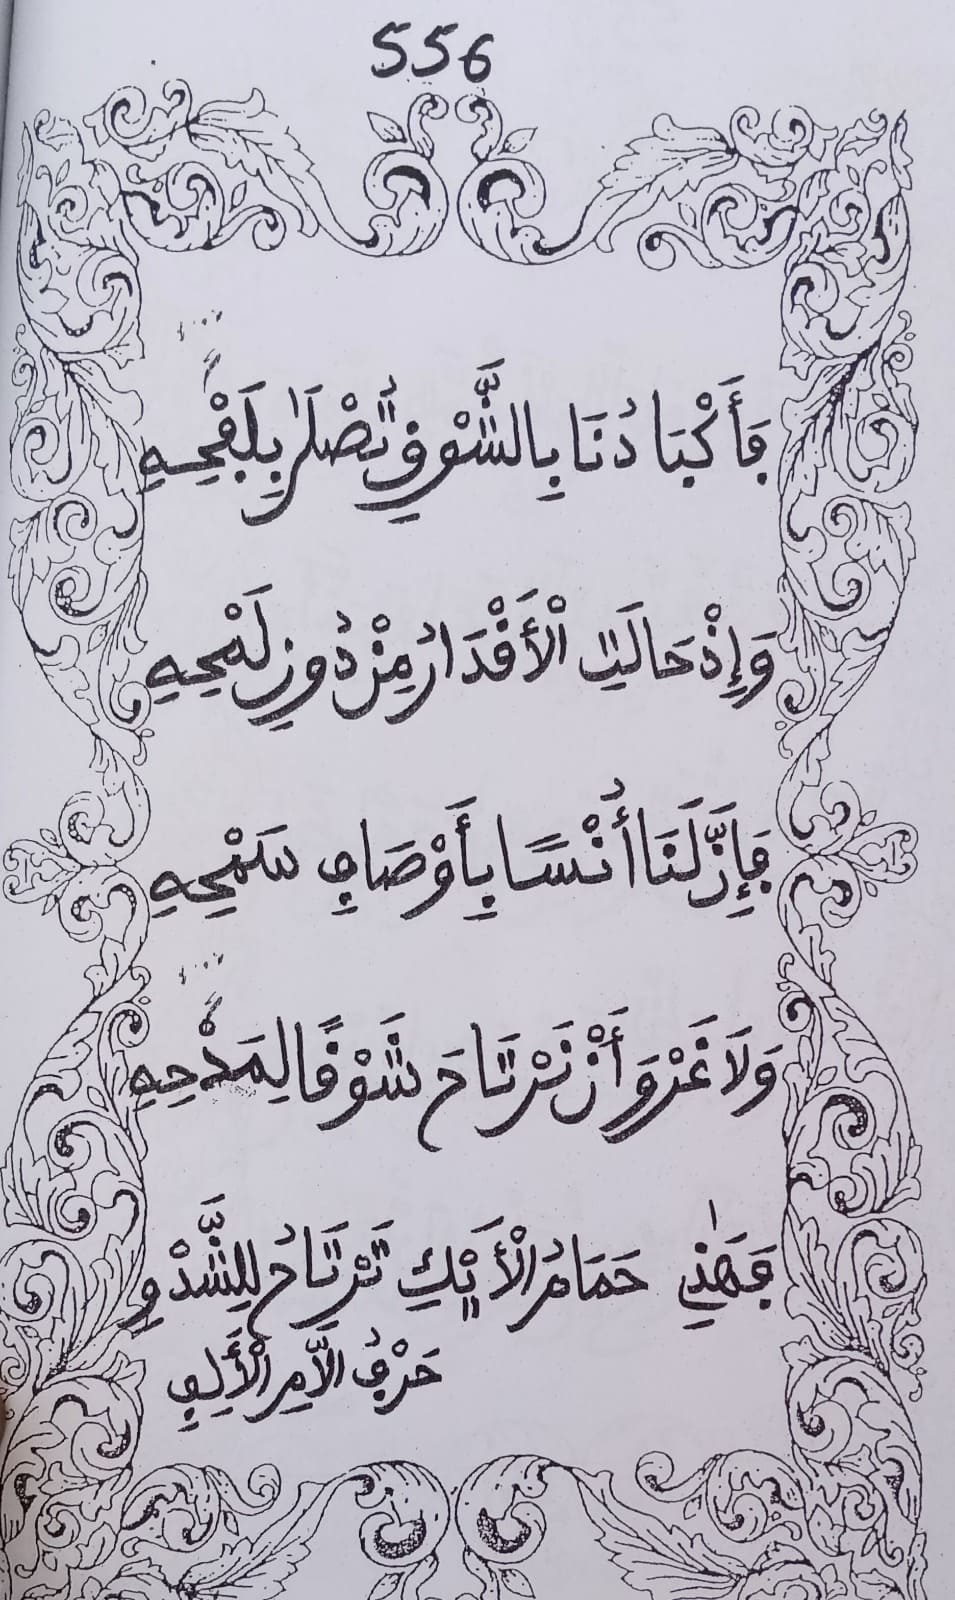 556
فَأَكْبَادُنَا بِالشَّوْقِ تُصْلَىٰ بِلَفْحِهِ
وَإِذْ حَالَتِ الْأَقْدَارُ مِنْ دُونِ لَمْحِهِ
فَإِنَّ لَنَا أُنْسًا بِأَوْصَافِ سَمْحِهِ
وَلَا غَرْوَ أَنْ نَرْتَاحَ شَوْقًا لِمَدْحِهِ
فَهَٰذِي حَمَامُ الْأَيْكِ تَرْتَاحُ لِلشَّدْوِ
حَرْفُ الَّامِ الْأَلِفِ